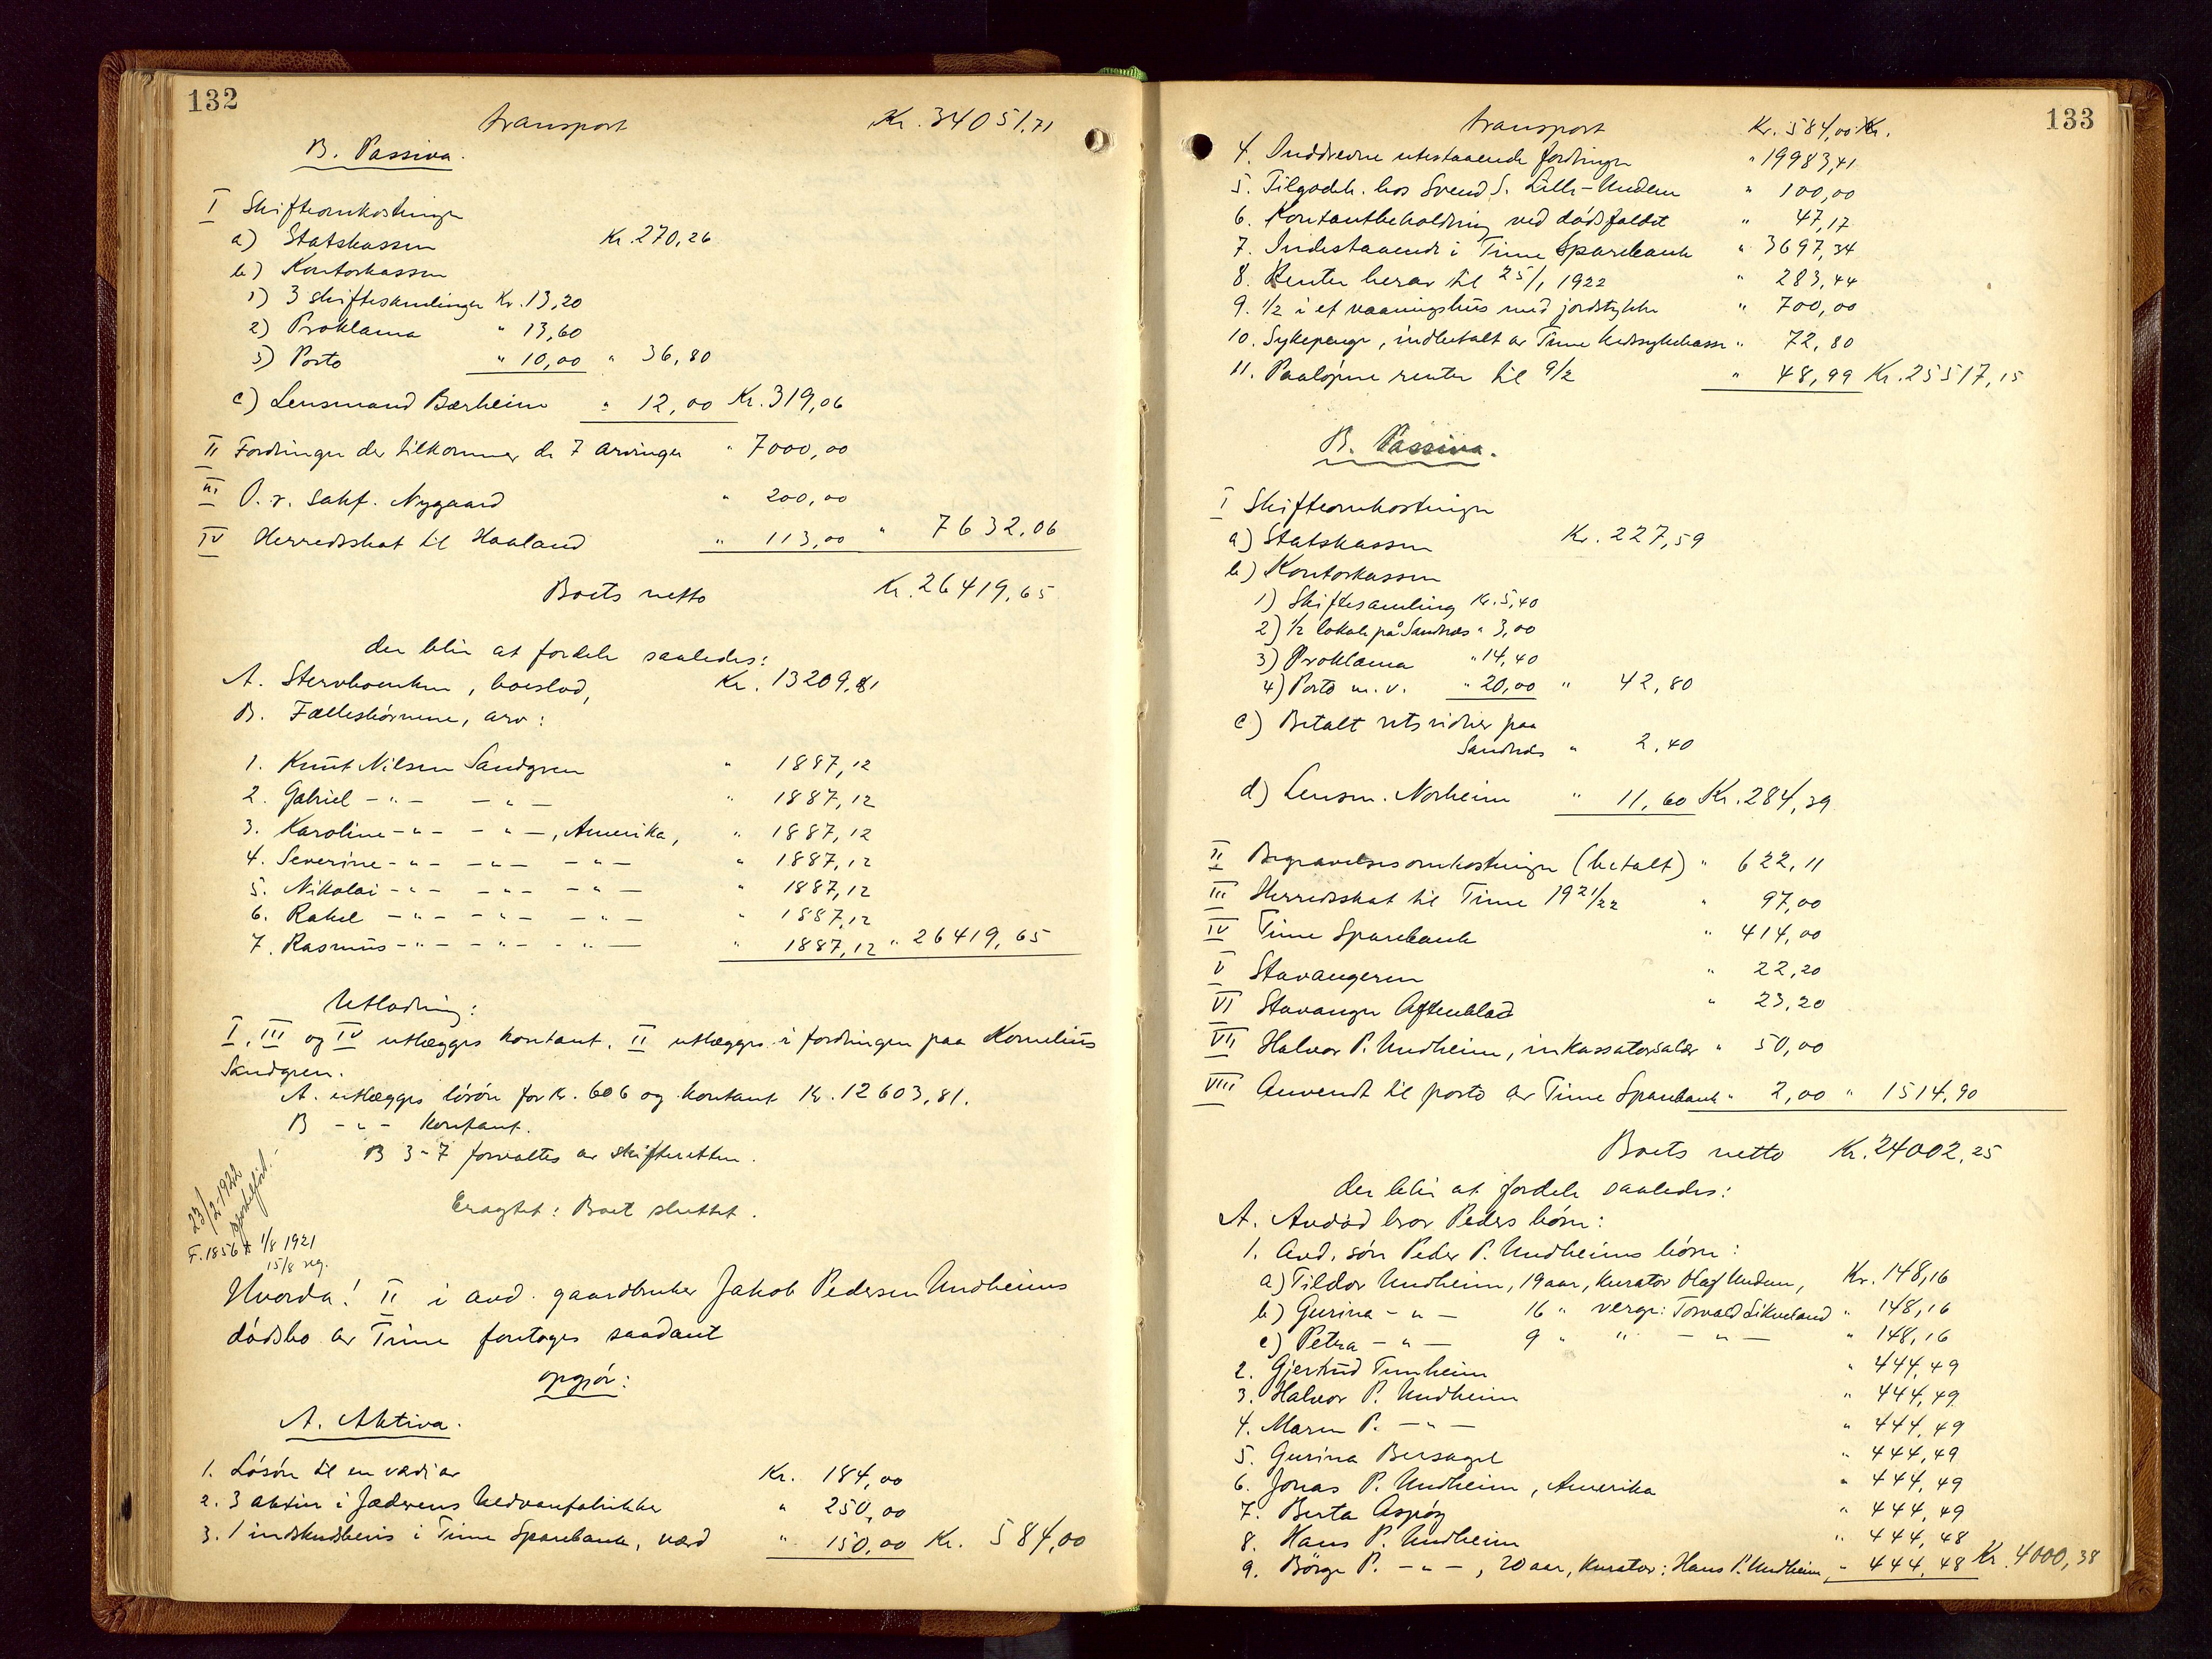 132
transport Kr. 34051,71
B. Passiva.
I Skifteomkostninger
a) Statskassen Kr. 270,26
b) Kontorkassen
1) 3 skiftesamlinger Kr. 13,20
2) Proklama " 13,60
3) Porto " 10,00 " 36,80
c) Lensmand Bærheim " 12,00 Kr. 319,06
II Fordringer der tilkommer de 7 arvinger " 7000,00
III O.r. sakf. Nygaard " 200,00
IV Herredsskat til Haaland " 113,00 " 7632,06
Boets netto Kr. 26419,65
der blir at fordele saaledes:
A. Stervboenken, boeslod, Kr. 13209,81
B. Fællesbørnene, arv:
1. Knut Nilsen Sandgren " 1887,12
2. Gabriel -"- -"- " 1887,12
3. Karoline -"- -"-, Amerika, " 1887,12
4. Severine -"- -"- -"- " 1887,12
5. Nikolai -"- -"- -"- " 1887,12
6. Rakel -"- -"- -"- " 1887,12
7. Rasmus -"- -"- -"- " 1887,12 " 26419,65
Utlodning:
I, III og IV utlægges kontant. II utlægges i fordringen paa Kornelius
Sandgren.
A. utlægges løsøre for kr. 606 og kontant Kr. 12603,81.
B -"- kontant.
B 3-7 forvaltes av skifteretten.
Eragtet: Boet sluttet.
23/2-1922
F. 1856 † 1/8 1921
15/8 reg.
Hvorda! II i avd. gaardbruker Jakob Pedersen Undheims
dødsbo av Time foretages saadant
opgjør:
A. Aktiva.
1. Løsøre til en værdi av Kr. 184,00
2. 3 aktier i Jæderens Uldvarefabrikker " 250,00
3. 1 indskudsbevis i Time Sparebank, værd " 150,00 Kr. 584,00
133
transport Kr. 584,00 Kr.
4. Inddrevne utestaaende fordringer " 19983,41
5. Tilgodeh. hos Svend S. Lille-Undem " 100,00
6. Kontantbeholdning ved dødsfaldet " 47,17
7. Indestaaende i Time Sparebank " 3697,34
8. Renter herav til 25/1 1922 " 283,44
9. 1/2 i et vaaningshus med jordstykke " 700,00
10. Sykepenger, indbetalt av Time kredssykekasse " 72,80
11. Paaløpne renter til 9/2 " 48,99 Kr. 25517,15
B. Passiva.
I Skifteomkostninger
a) Statskassen Kr. 227,59
b) Kontorkassen
1) Skiftesamling Kr. 5,40
2) 1/2 lokale på Sandnes " 3,00
3) Proklama " 14,40
4) Porto m.v. " 20,00 " 42,80
c) Betalt retsvidner paa
Sandnes " 2,40
d) Lensm. Norheim " 11,60 Kr. 284,39
II Begravelsesomkostninger (betalt) " 622,11
III Herredsskat til Time 1921/22 " 97,00
IV Time Sparebank " 414,00
V Stavangeren " 22,20
VI Stavanger Aftenblad " 23,20
VII Halvor P. Undheim, inkassatorsalær " 50,00
VIII Anvendt til porto av Time Sparebank " 2,00 " 1514,90
Boets netto Kr. 24002,25
der blir at fordele saaledes:
A. Avdød bror Peders børn:
1. Avd. søn Peder P. Undheims børn:
a) Tildor Undheim, 19 aar, kurator Olaf Undem, Kr. 148,16
b) Gurina -"- 16 " verge: Torvald Sikveland " 148,16
c) Petra -"- 9 " " -"- " 148,16
2. Gjertrud Tunheim " 444,49
3. Halvor P. Undheim " 444,49
4. Maren P. -"- " 444,49
5. Gurina Bersagel " 444,49
6. Jonas P. Undheim, Amerika " 444,49
7. Berta Aspøy " 444,49
8. Hans P. Undheim " 444,48
9. Børge P. -"-, 20 aar, kurator: Hans P. Undheim, " 444,48 Kr. 4000,38